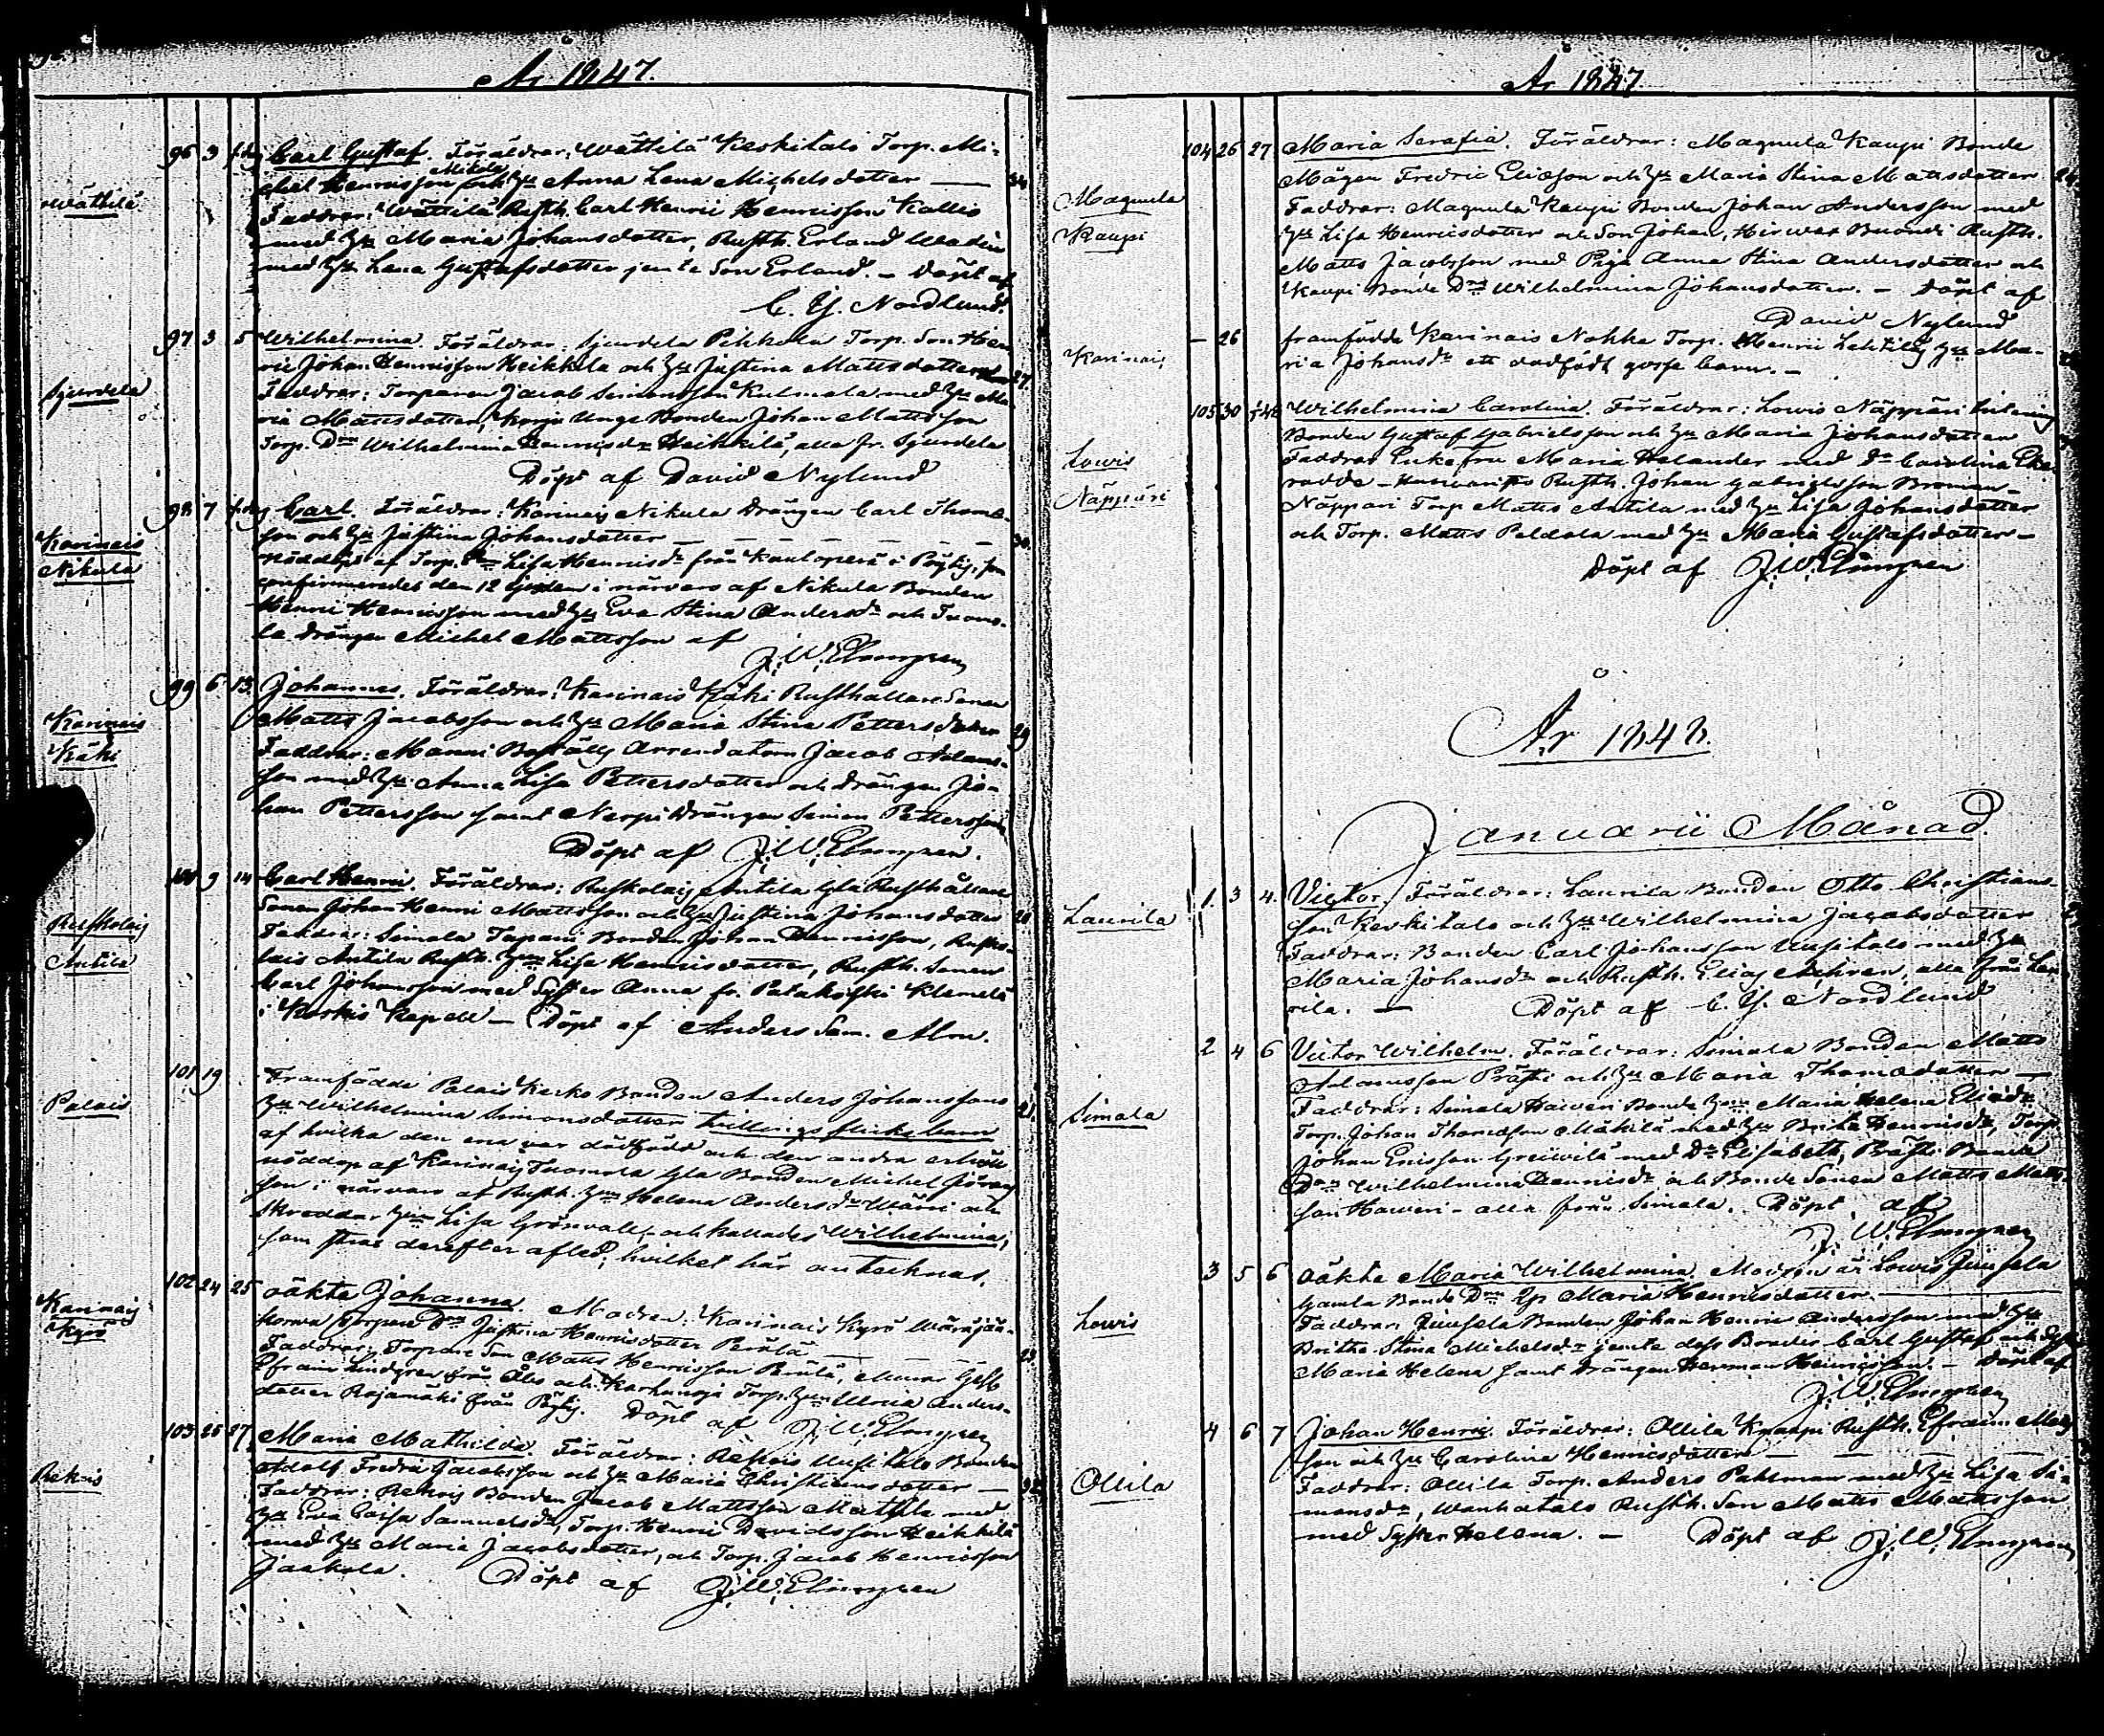 År 1847.
Wättilä
96 3 Carl Gustaf. Föräldrar: Wättilä Keskitalo Torp. Mi-
chel Henricsson Mikola och Hu Anna Lena Michelsdotter — 34
Faddrar: Wättilä Rusth. Carl Henric Henricsson Kallis
med Hu Maria Johansdotter, Rusth. Erland Wadén
med Hu Lena Gustafsdotter jemte Son Erland. – Döpt af
C. G. Nordlund.
Sjurdela
97 3 5 Wilhelmina. Föräldrar: Sjurdela Pihkola Torp. Son Hen-
ric Johan Henricsson Heikkilä och Hu Justina Mattsdotter 27.
Faddrar: Torparen Jacob Simonsson Kulmala med Hu Ma-
ria Mattsdotter, Unge Bonden Johan Mattsson
Torp. Dr Wilhelmina Henricsdr Heikkilä, alla fr. Sjurdela
Döpt af David Nylund
Karinais
Nikula
98 7 Carl. Föräldrar: Karinais Nikula Drängen Carl Thoma-
son och Hu Justina Johansdotter — 30.
nöddöpt af Torp. Lisa Henricsdr från i Pöytis, som
confirmerades den 12 i närvaro af Nikula Bonden
Henric Henricsson med Hu Eva Stina Andersdr och Tuomo-
la Drängen Michel Mattsson af
J. W. Elmgren
Karinais
Käki
99 6 13. Johannes. Föräldrar: Karinais Käki Rusthållare Sonen
Matts Jacobsson och Hu Maria Stina Pettersdotter 29
Faddrar: Manni Boställs Arrendatorn Jacob Adams-
son med Hu Anna Lisa Pettersdotter och Drängen Jo-
han Pettersson samt Nerpi Drängen Simon Pettersson
Döpt af J. W. Elmgren.
Ruskolais
Antila
100 9 14 Carl Henric. Föräldrar: Ruskolais Antila Gla Rusthållare
Sonen Johan Henric Mattsson och Hu Justina Johansdotter 20.
Faddrar: Simala Tapani Bonden Johan Henricsson, Rusko-
lais Antila Rusth. Hu Lisa Henricsdotter, Rusth. Sonen
Carl Johansson med Syster Anna fr. Patakoski Klemelä
i Koskis Kapell – Döpt af Anders Sam. Alm.
Palais
101 19 Framfödde Palais Kerko Bonden Anders Johanssons
Hu Wilhelmina Simonsdotter twillings flickebarn 21.
af hvilka den ena var dödfödd och den andra erhöll
nöddop af Karinais Tuomola Gla Bonden Michel Jöran-
son i närvaro af Rusth. Hu Helena Andersdr Wärri och
Skreddar Hu Lisa Grönvall, och kallades Wilhelmina,
som straxt derefter afled, hvilket här antecknas.
Karinais
Kyrö
102 24 25 oäkta Johanna. Modren: Karinais Kyrö
Torpare Dr Justina Henricsdotter Perälä —
Faddrar: Torpare Son Matts Henricsson Perälä, Murar Gesll 23.
Efraim Lindgren från Åbo och Karhunoja Torp. Hu Ulrica Anders-
dotter Rajamäki från Pöytis. Döpt af J. W. Elmgren
Rekois
103 25 27 Maria Mathilda. Föräldrar: Rekois Uusitalo Bonden
Adolf Fredric Jacobsson och Hu Maria Christiansdotter — 32
Faddrar: Rekois Bonden Jacob Mattsson Mattila med
Hu Eva Caisa Samuelsdr, Torp. Henric Davidsson Heikkilä
med Hu Maria Jacobsdotter, och Torp. Jacob Henricsson
Jaakola. Döpt af J. W. Elmgren
År 1847
Magnula
Kaupi
104 26 27 Maria Serafia. Föräldrar: Magnula Kaupi Bonde
Mågen Fredric Eliasson och Hu Maria Stina Mattsdotter
Faddrar: Magnula Kaupi Bonden Johan Andersson med
Hu Lisa Henricsdotter och Son Johan, Hirwas Rusth.
Matts Jacobsson med Piga Anna Stina Andersdotter och
Kaupi Bonde Dr Wilhelmina Johansdotter. – Döpt af
David Nylund
Karinais
– 26 framfödde Karinais Nokka Torp. Henric Lehtiläs Hu Ma-
ria Johansdr ett dödfödt gosse barn. –
Lowis
Näppäri
105 30 Wilhelmina Carolina. Föräldrar: Lowis Näppäri
Bonden Gustaf Gabrielsson och Hu Maria Johansdotter
Faddrar Enkefru Maria Helander med Dr Carolina
Rusth. Johan Gabrielsson Broman –
Näppäri Torp. Matts Antila med Hu Lisa Johansdotter
och Torp. Matts Peldola med Hu Maria Gustafsdotter –
Döpt af J. W. Elmgren
År 1848.
Januarii Månad.
Laurila
1. 3 4. Victor. Föräldrar: Laurila Bonden Otto Christians-
son Keskitalo och Hu Wilhelmina Jacobsdotter
Faddrar: Bonden Carl Johansson Uusitalo med Hu
Maria Johansdr och Rusth. Elias alla från Lau-
rila. — Döpt af C. G. Nordlund
Simala
2 4 6 Victor Wilhelm. Föräldrar: Simala Bonden Matts
Adamsson Prästi och Hu Maria Thomasdotter —
Faddrar: Simala Haweri Bonde Hu Maria Helena Eliædr
Torp. Johan Thomasson Mäkilä med Hu Brita Henricsdr, Torp
Johan Ericsson Greiwilä med Dr Elisabeth, Prästi Bonde
Dr Wilhelmina Henricsdr och Bonde Sonen Matts Matts-
son Haweri – alla från Simala. Döpt af
J. W. Elmgren
Lowis
3 5 6 oäkta Maria Wilhelmina. Modren är Lowis Junsela
Gamla Bonde Dr Maria Henricsdotter. —
Faddrar: Junsela Bonden Johan Henric Andersson med Hu
Britha Stina Michelsdr jemte dess Broder Carl Gustaf och Syster
Maria Helena samt Drängen Herman Henricsson. – Döpt af
J. W. Elmgren
Ollila
4 6 7 Johan Henric. Föräldrar: Ollila Knaapi Rusth. Efraim Matts-
son och Hu Carolina Henricsdotter —
Faddrar: Ollila Torp. Anders Pahlman med Hu Lisa Si-
monsdr, Wanhatalo Rusth. Son Matts Mattsson
med Syster Helena. – Döpt af J. W. Elmgren